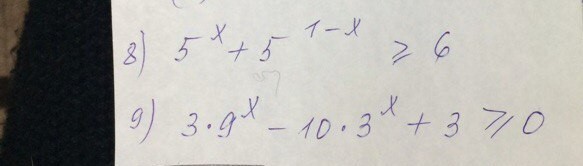 8) 5^x + 5^{1-x} ⩾ 6
9) 3·9^x - 10·3^x + 3 ⩾ 0